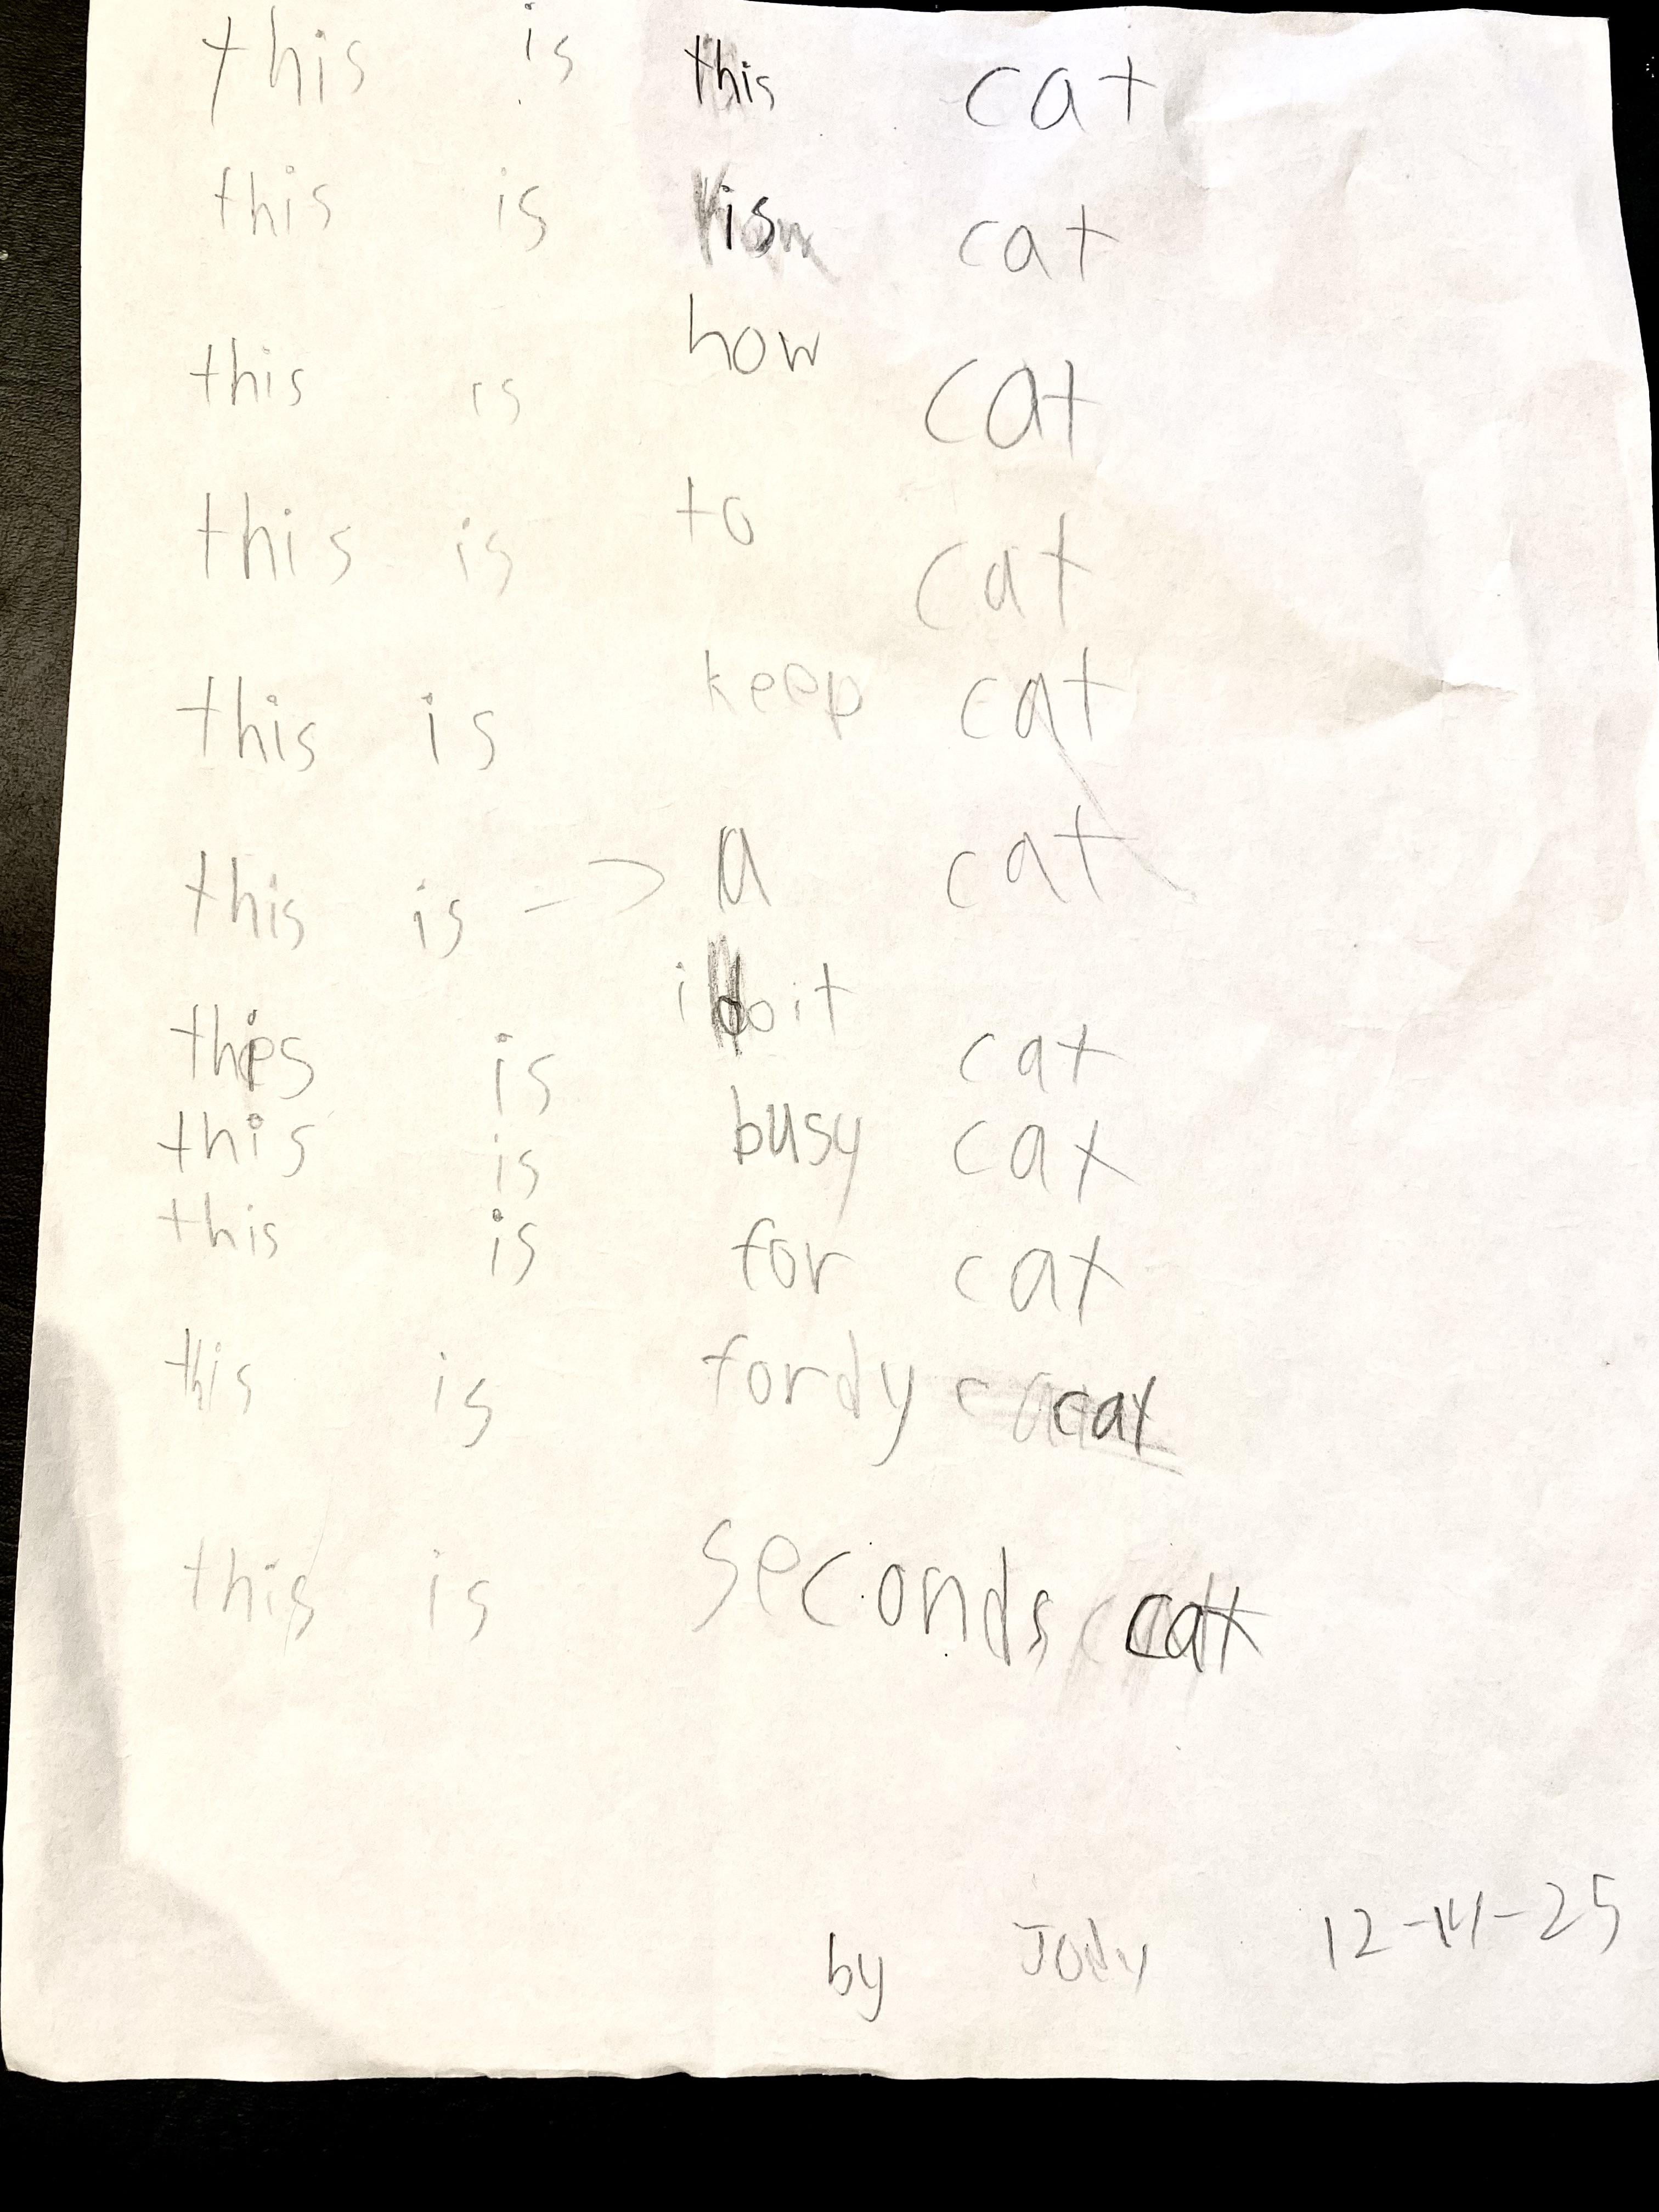 this is this cat
this is is cat
this is how cat
this is to cat
this is keep cat
this is -> a cat
this is idoit cat
this is busy cat
this is for cat
this is fordy cat
this is seconds cat
by Jody 12-14-25